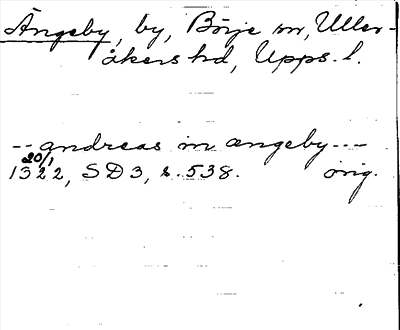 Ängeby, by, Börje sn, Uller-
åkers hd, Upps. l.
-- andreas in ængeby ---
20/1
1322, SD3, s. 538. orig.